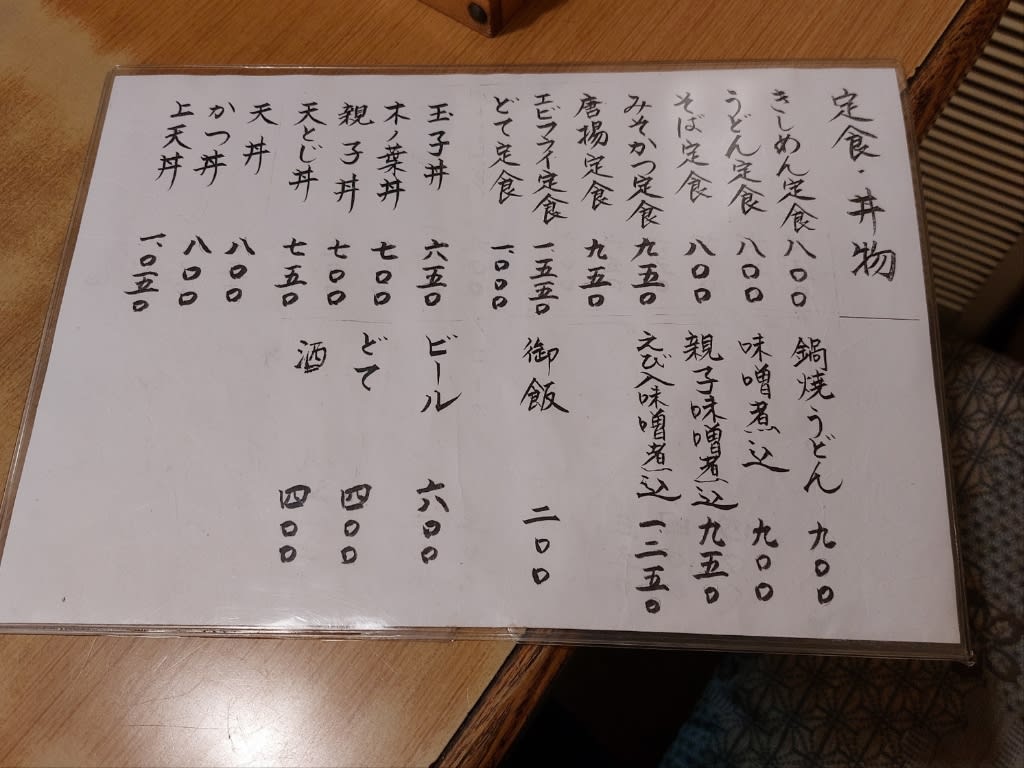 定食・丼物
きしめん定食 八〇〇
うどん定食 八〇〇
そば定食 八〇〇
みそかつ定食 九五〇
唐揚定食 九五〇
エビフライ定食 一、五五〇
どて定食 一、〇〇〇
玉子丼 六五〇
木ノ葉丼 七〇〇
親子丼 七〇〇
天とじ丼 七五〇
天丼 八〇〇
かつ丼 八〇〇
上天丼 一、〇五〇
鍋焼うどん 九〇〇
味噌煮込 九〇〇
親子味噌煮込 九五〇
えび入味噌煮込 一、二五〇
御飯 二〇〇
ビール 六〇〇
どて 四〇〇
酒 四〇〇